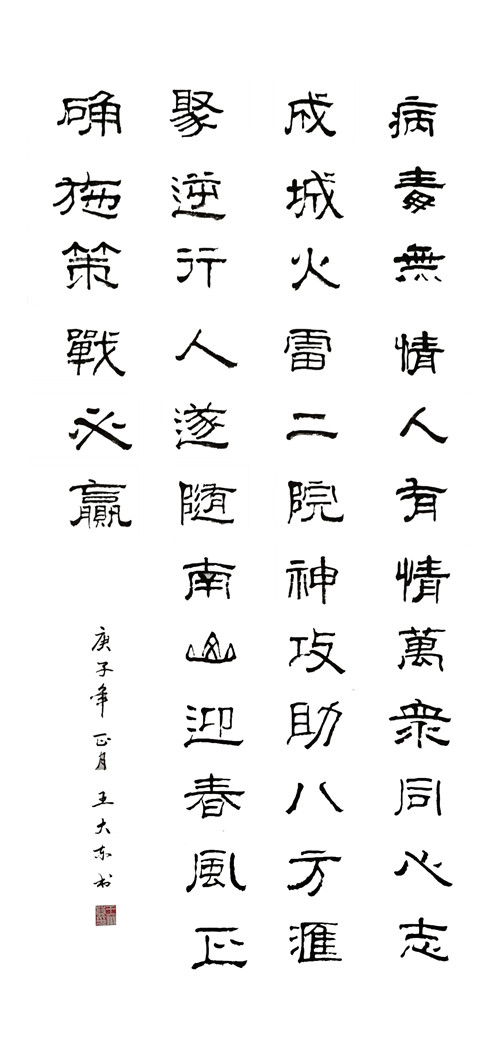 病毒無情人有情萬衆同心志
成城火雷二院神攻助八方滙
聚逆行人遂随南山迎春風正
确施策戰必赢
庚子年正月王大东书